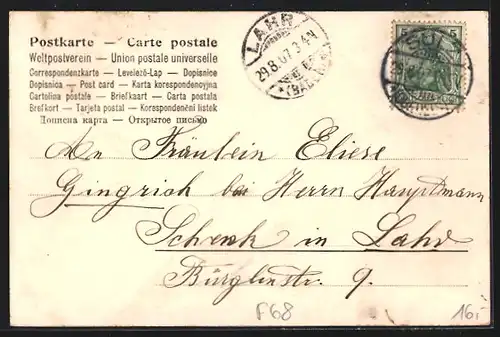 Postkarte — Carte postale
Weltpostverein — Union postale universelle
Correspondenzkarte — Levelező-Lap — Dopisnice
Dopisnica — Post card — Karta korespondencyjna
Cartolina postale — Briefkaart — Carta postala
Brefkort — Tarjeta postal — Korespondenční lístek
Дописна карта — Открытое письмо
LAHR
29.8.07. 3-4N
5 5
An Fräulein Eliese
Gingrich bei Herrn Hauptmann
Schenk in Lahr
Bürglinstr. 9.
F68
16,-